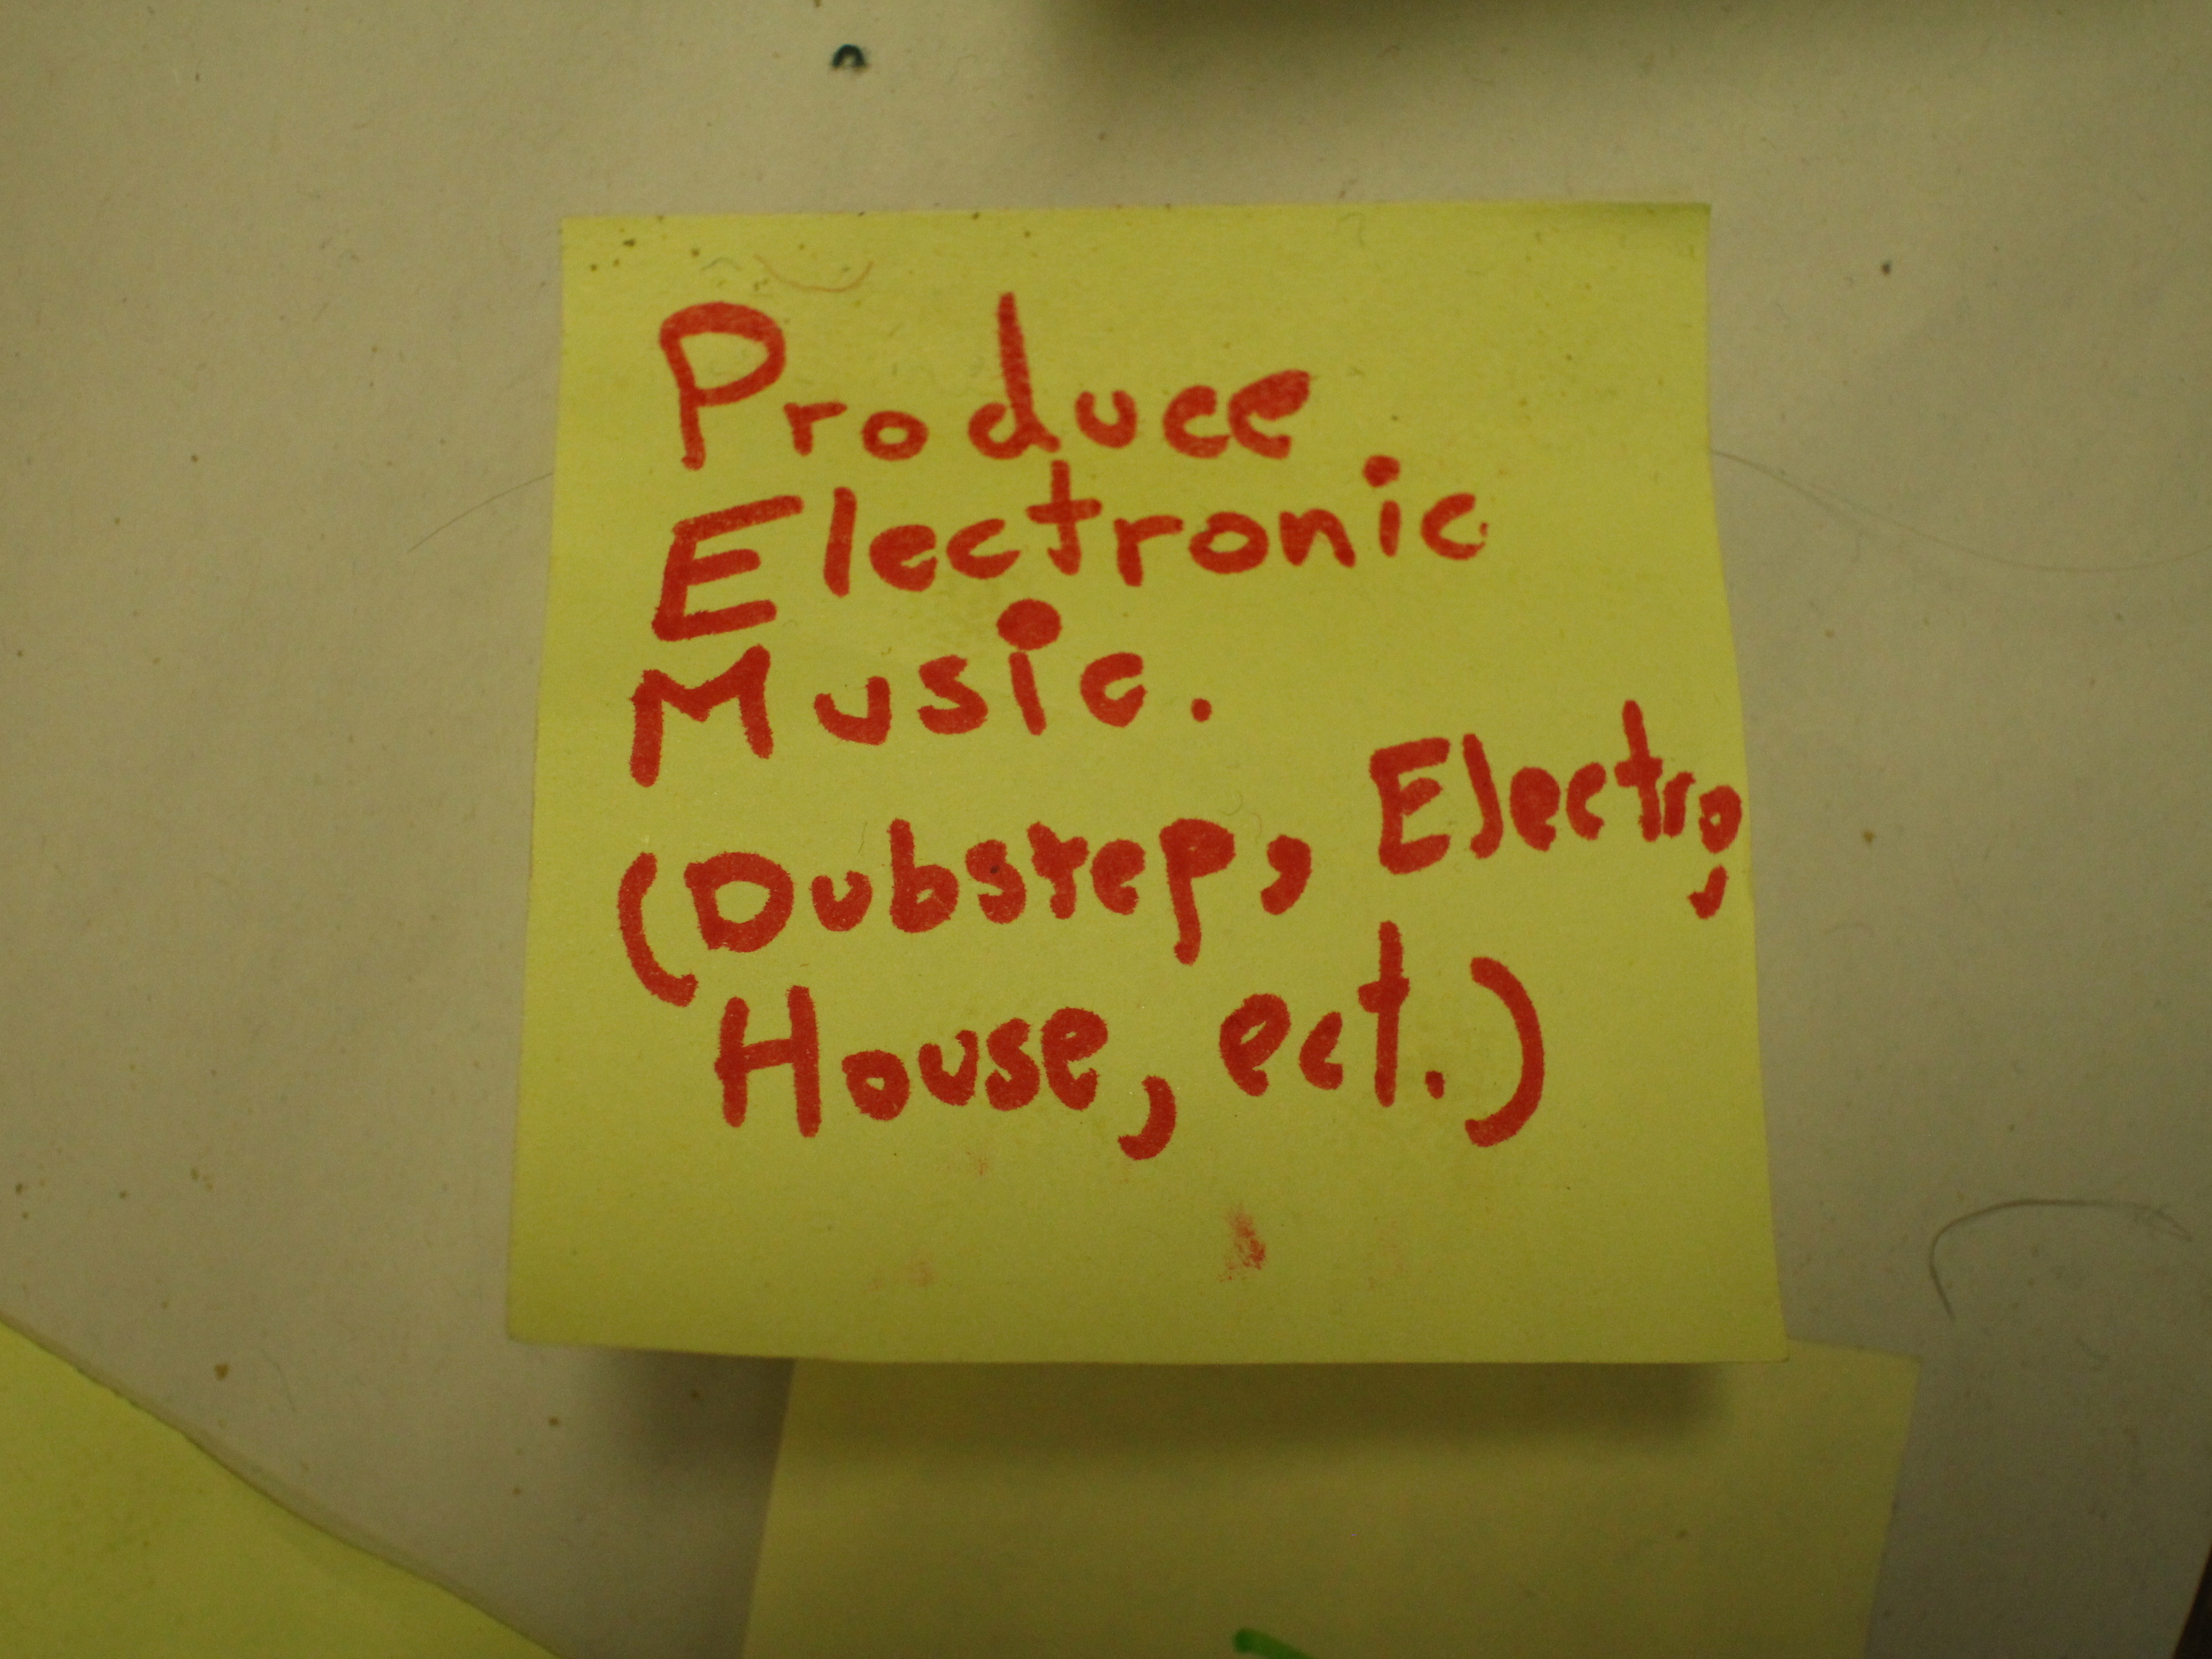 Produce
Electronic
Music.
(Dubstep, Electro,
House, ect.)